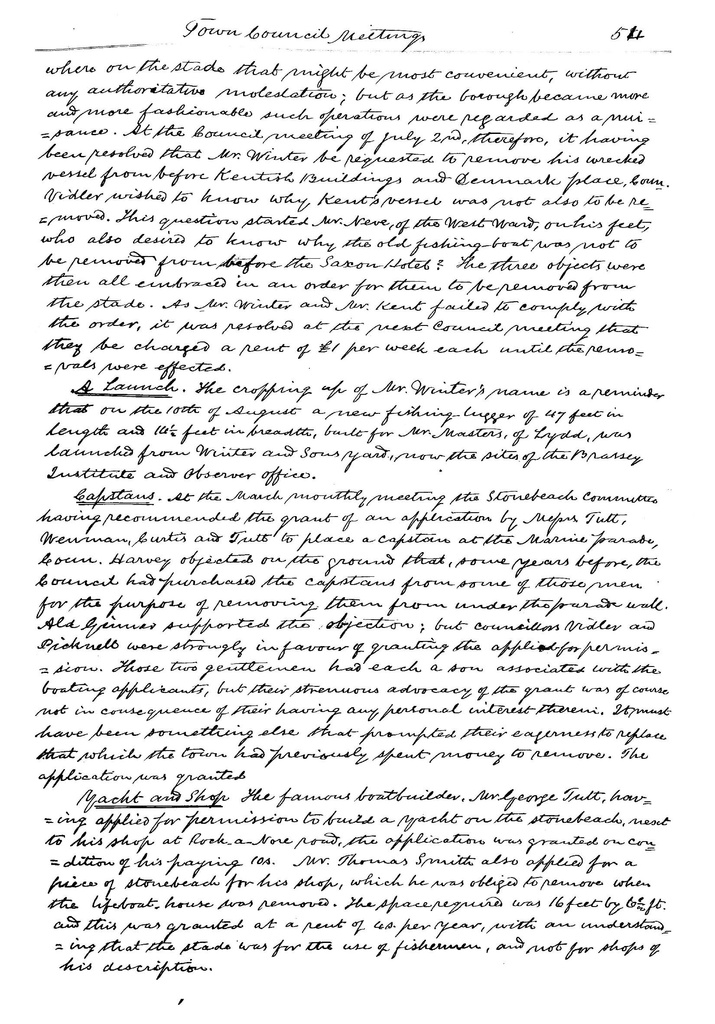 Town Council Meetings 54
where on the stade that might be most convenient, without
any authoritative molestation; but as the borough became more
and more fashionable such operations were regarded as a nui-
=sance. At the Council meeting of July 2nd, therefore, it having
been resolved that Mr. Winter be requested to remove his wrecked
vessel from before Kentish Buildings and Denmark place, Coun.
Vidler wished to know why Kent's vessel was not also to be re-
=moved. This question started Mr. Neve, of the West Ward, on his feet,
who also desired to know why the old fishing-boat was not to
be removed from before the Saxon Hotel? The three objects were
then all embraced in an order for them to be removed from
the stade. As Mr. Winter and Mr. Kent failed to comply with
the order, it was resolved at the next Council meeting that
they be charged a rent of £1 per week each until the remo-
=vals were effected.
A Launch. The cropping up of Mr. Winter's name is a reminder
that on the 10th of August a new fishing-lugger of 47 feet in
length and 14½ feet in breadth, built for Mr. Masters, of Lydd, was
launched from Winter and Sons yard, now the sites of the Brassey
Institute and Observer office.
Capstans. At the March monthly meeting the Stonebeach Committee
having recommended the grant of an application by Messrs Tutt,
Wenman, Curtis and Tutt to place a capstan at the Marine parade,
Coun. Harvey objected on the ground that, some years before, the
Council had purchased the capstans from some of those men
for the purpose of removing them from under the parade wall.
Ald Ginner supported the objection; but councillors Vidler and
Picknell were strongly in favour of granting the applied for permis-
=sion. Those two gentlemen had each a son associated with the
boating applicants, but their strenuous advocacy of the grant was of course
not in consequence of their having any personal interest therein. It must
have been something else that prompted their eagerness to replace
that which the town had previously spent money to remove. The
application was granted
Yacht and Shop The famous boatbuilder, Mr George Tutt, hav-
=ing applied for permission to build a yacht on the stonebeach, next
to his shop at Rock-a-Nore road, the application was granted on con-
=dition of his paying 10s. Mr. Thomas Smith also applied for a
piece of stonebeach for his shop, which he was obliged to remove when
the lifeboat-house was removed. The space required was 16 feet by ft.
and this was granted at a rent of 4s. per year, with an understand-
=ing that the stade was for the use of fishermen, and not for shops of
his description.